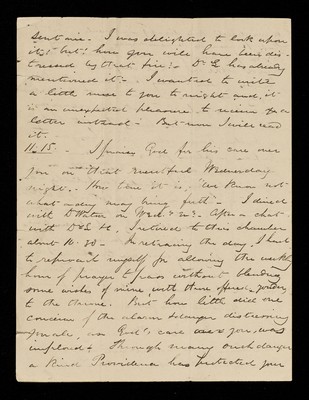 sent me. I was delighted to look upon
it, but how you will have been dis-
tressed by that fire! Dr. L has already
mentioned it. I wanted to write
a little more to you to night and, it
is an unexpected pleasure to receive a
letter instead. But now I will read
it.
11.15. I praise God for his care over
you on that eventful Wednesday
night. How true it is, "We know not
what a day may bring forth". I dined
with D on Wed. Eve. After a chat
with Dr L &c, I retired to this chamber
about 10.30. In retracing the day, I had
to reproach myself for allowing the weekly
hour of prayer to pass without blending
some wishes of mine with those offered, yonder,
to the throne. But how little did one
conceive of the alarm & danger distressing
females, as God's care over you, was
implored. Through many such dangers
a kind Providence has protected your